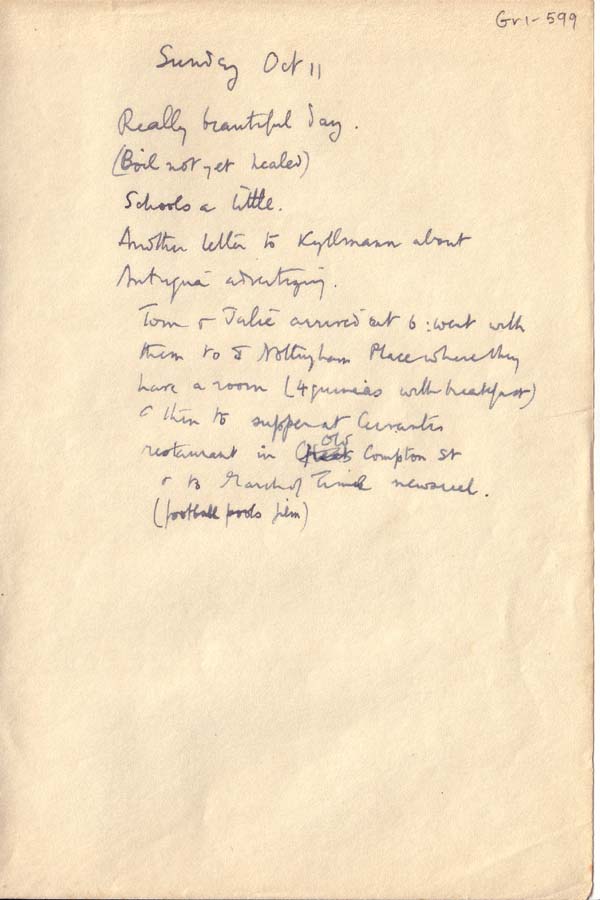 Gr1-599
Sunday Oct 11
Really beautiful day.
(Boil not yet healed)
Schools a little.
Another letter to Kyllmann about
Antigua advertizing.
Tom & Julie arrived at 6: went with
them to 5 Nottingham Place where they
have a room (4 guineas with breakfast)
& then to supper at Cervantes
restaurant in Old Compton St
& to March of Time newsreel.
(football pools film)